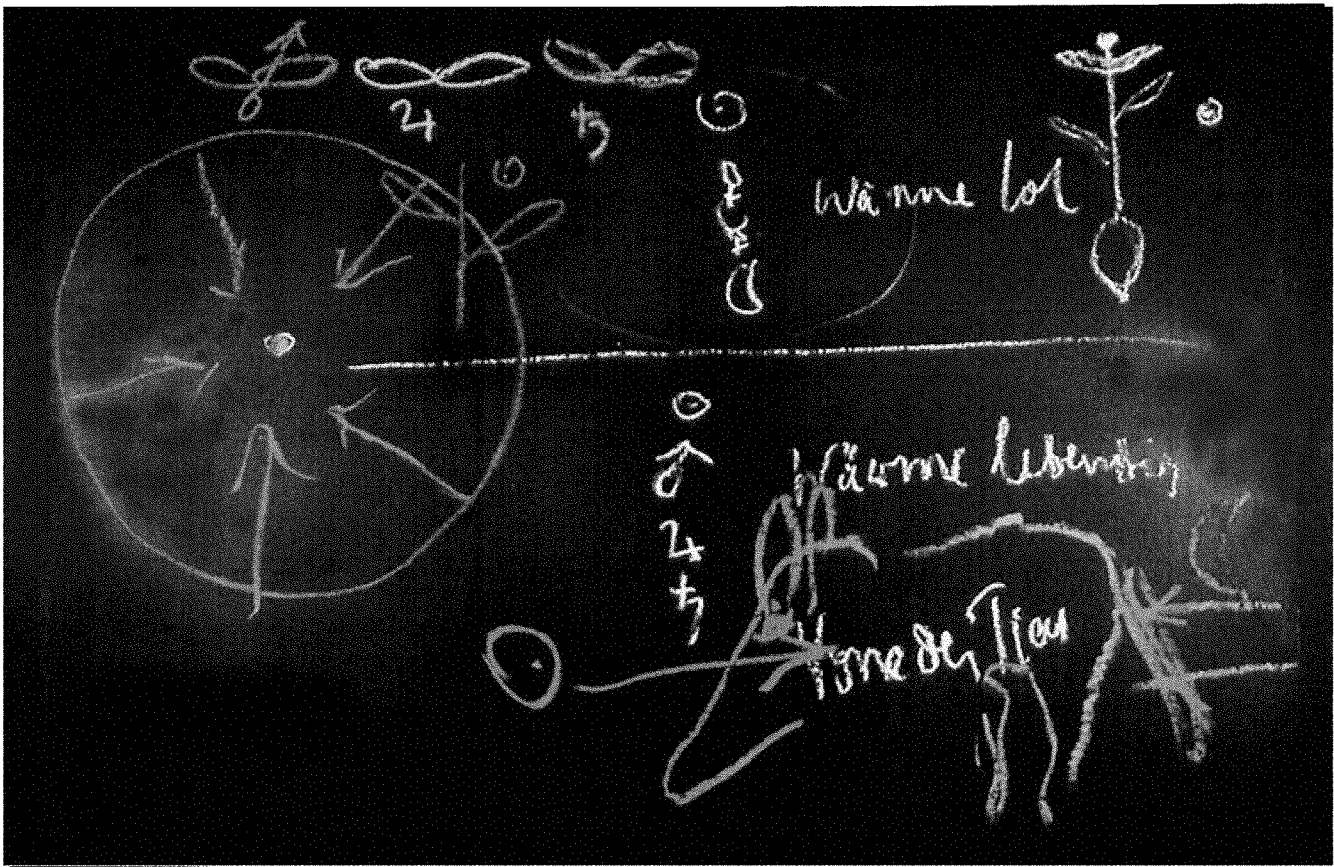 ♂ ♃ ♄ ☉
♀
☿
☾
Wärme tot
☉
☉
♂
♃
♄
Wärme lebendig
der Tier